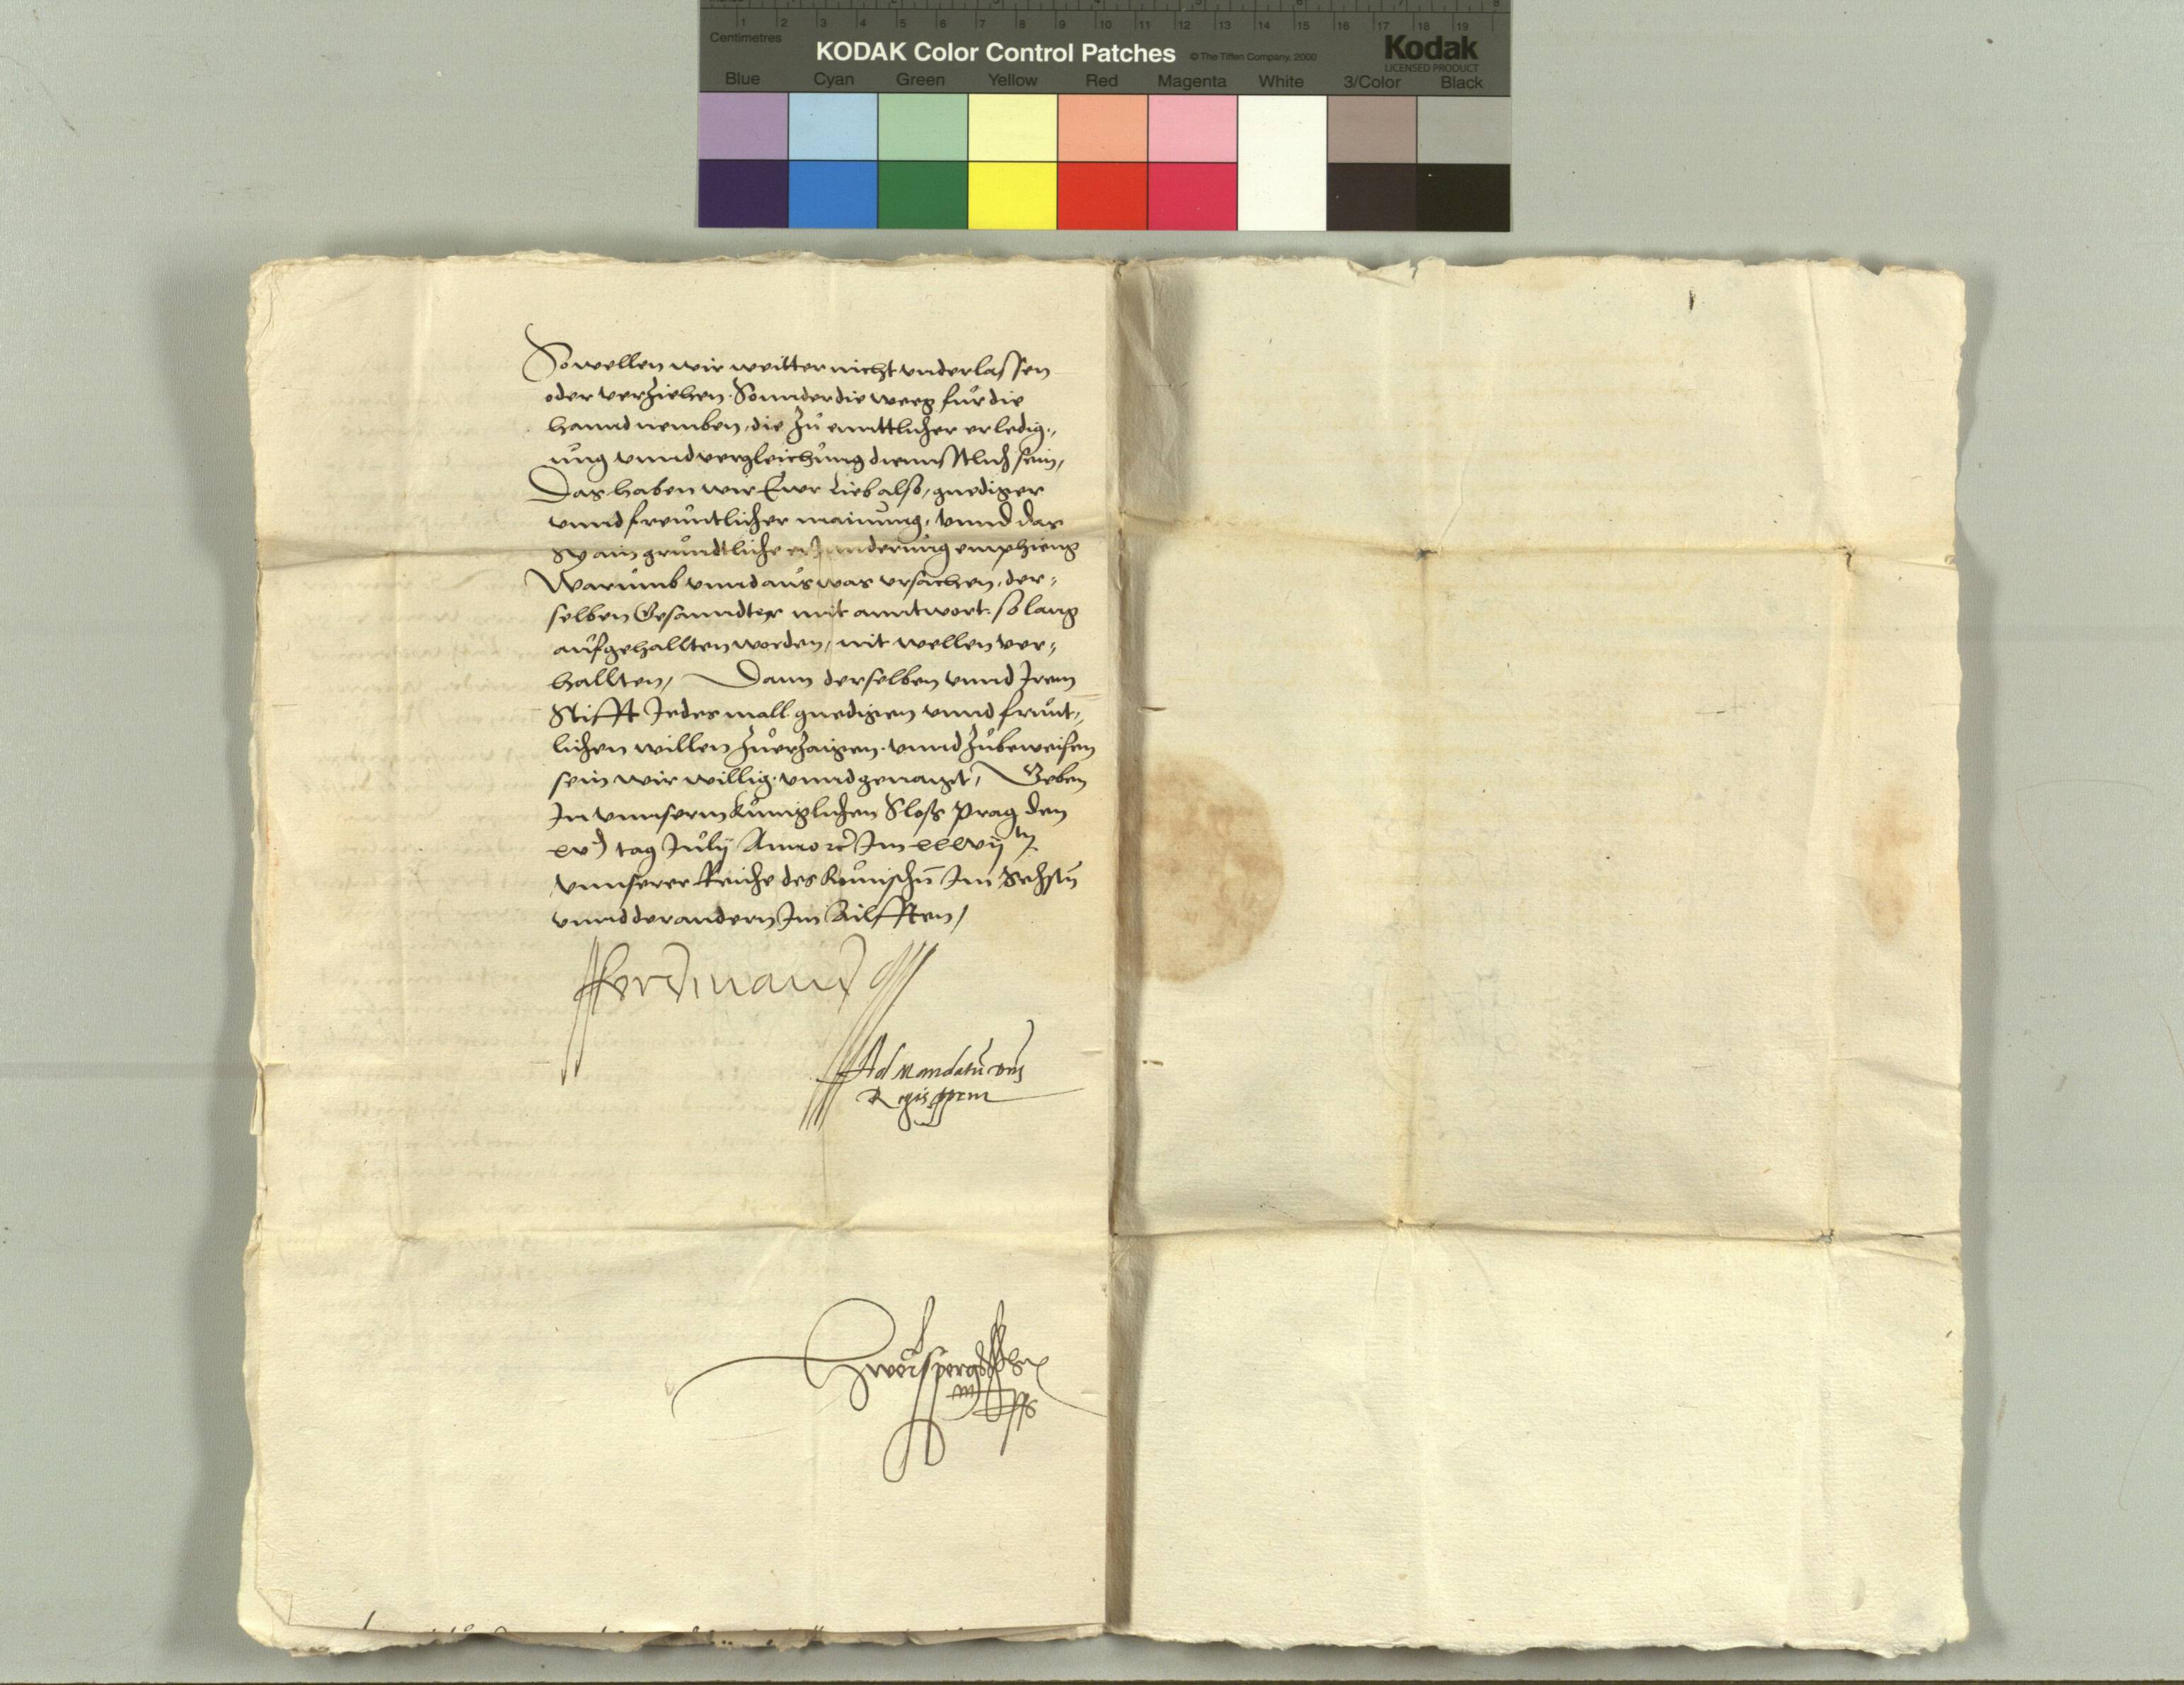 1 2 3 4 5 6 7 8 9 10 11 12 13 14 15 16 17 18 19
Centimetres
KODAK Color Control Patches © The Tiffen Company, 2000 Kodak
LICENSED PRODUCT
Blue Cyan Green Yellow Red Magenta White 3/Color Black
So wellen wir weitter nicht vnderlassen
oder verziehen. Sonnder die weeg für die
hannd nemben, die zů enntlicher erledig=
ung vnnd vergleichung diennstlich sein,
Das haben wir Ewr Lieb also, gnediger
vnnd freuntlicher mainung, vnnd das
Sy ain grundtliche erJnnderung emphieng
Warumb vnnd aus was vrsachen, der=
selben Gesanndter mit anntwort. so lang
aufgehallten worden, nit wellen ver=
hallten, Dann derselben vnnd Jrem
Stifft Jedesmall gnedigen vnnd frunt=
lichen willen zuerzaigen. vnnd zubeweisen
sein wir willig. vnnd genaigt, Geben
Jn vnnserm kuniglichen Slosß Prag den
tag Julij Anno &c Jm xxxvij
vnnserer Reiche des Romischn Jm Sechstn
vnnd der andern Jm Ailfften,
Ferdinand
Ad mandatū dnj
Regis ppriu